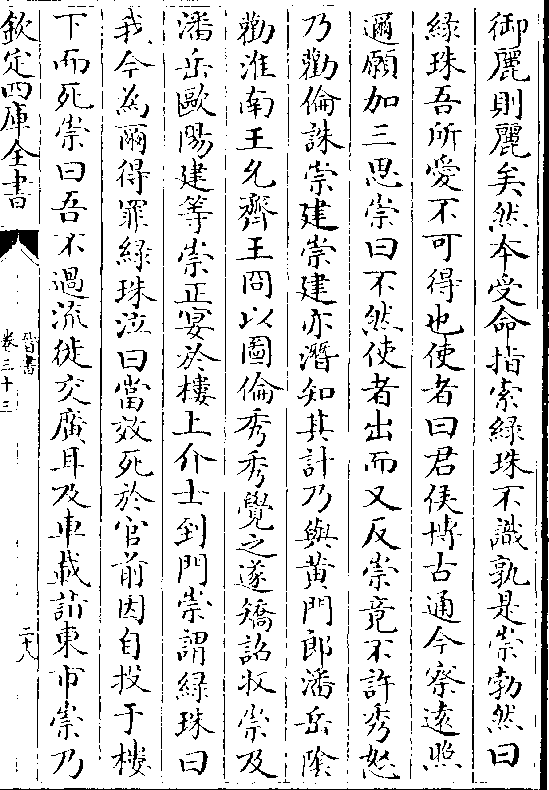 御麗則麗矣然本受命指索綠珠不識孰是崇勃然曰
綠珠吾所愛不可得也使者曰君侯博古通今察遠照
邇願加三思崇曰不然使者出而又反崇竟不許秀怒
乃勸倫誅崇建崇建亦潛知其計乃與黃門郎潘岳陰
勸淮南王允齊王冏以圖倫秀秀覺之遂矯詔收崇及
潘岳歐陽建等崇正宴於樓上介士到門崇謂綠珠曰
我今為爾得罪綠珠泣曰當效死於官前因自投于樓
下而死崇曰吾不過流徙交廣耳及車載詣東市崇乃
欽定四庫全書
晉書
卷三十三
二十八